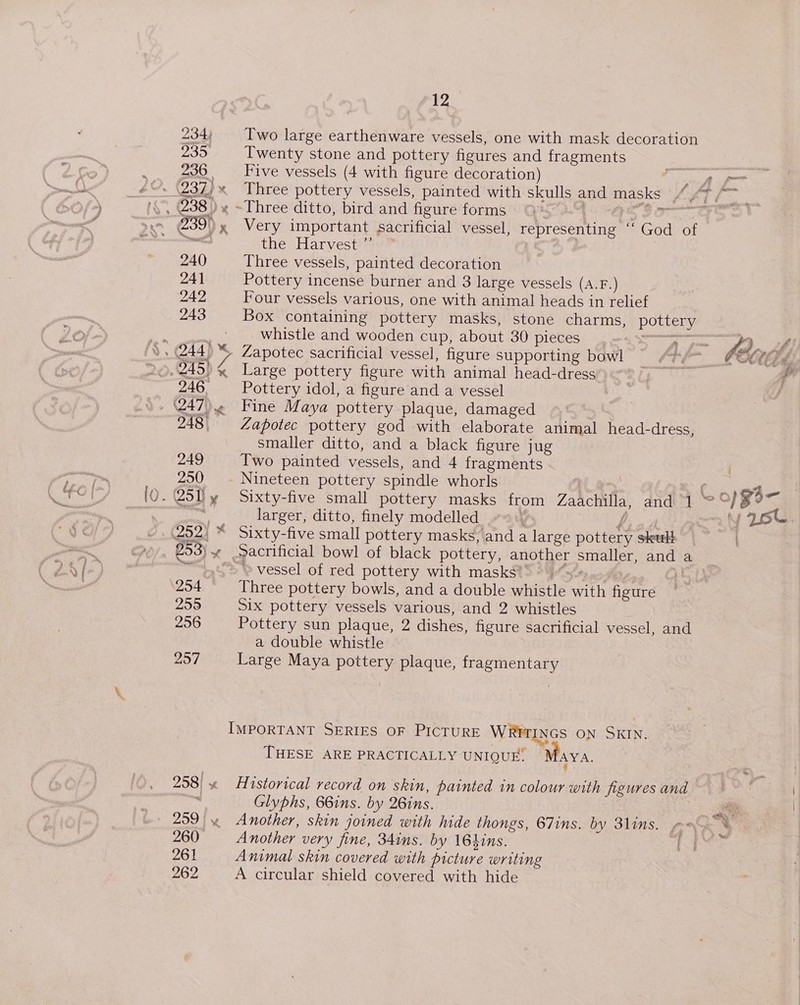 12
234 Two large earthenware vessels, one with mask decoration
235 Twenty stone and pottery figures and fragments
236 Five vessels (4 with figure decoration)
237 Three pottery vessels, painted with skulls and masks
238 Three ditto, bird and figure forms
239 Very important sacrificial vessel, representing “God of
the Harvest”
240 Three vessels, painted decoration
241 Pottery incense burner and 3 large vessels (A.F.)
242 Four vessels various, one with animal heads in relief
243 Box containing pottery masks, stone charms, pottery
whistle and wooden cup, about 30 pieces
244 Zapotec sacrificial vessel, figure supporting bowl
245 Large pottery figure with animal head-dress
246 Pottery idol, a figure and a vessel
247 Fine Maya pottery plaque, damaged
248 Zapotec pottery god with elaborate animal head-dress,
smaller ditto, and a black figure jug
249 Two painted vessels, and 4 fragments
250 Nineteen pottery spindle whorls
10. 251 Sixty-five small pottery masks from Zaachilla, and 1
larger, ditto, finely modelled
252 Sixty-five small pottery masks, and a large pottery skull
253 Sacrificial bowl of black pottery, another smaller, and a
vessel of red pottery with masks
254 Three pottery bowls, and a double whistle with figure
255 Six pottery vessels various, and 2 whistles
256 Pottery sun plaque, 2 dishes, figure sacrificial vessel, and
a double whistle
257 Large Maya pottery plaque, fragmentary
IMPORTANT SERIES OF PICTURE WRITINGS ON SKIN.
THESE ARE PRACTICALLY UNIQUE. MAYA.
258 Historical record on skin, painted in colour with figures and
Glyphs, 66ins. by 26ins.
259 Another, skin joined with hide thongs, 67ins. by 31ins.
260 Another very fine, 34ins. by 16½ins.
261 Animal skin covered with picture writing
262 A circular shield covered with hide